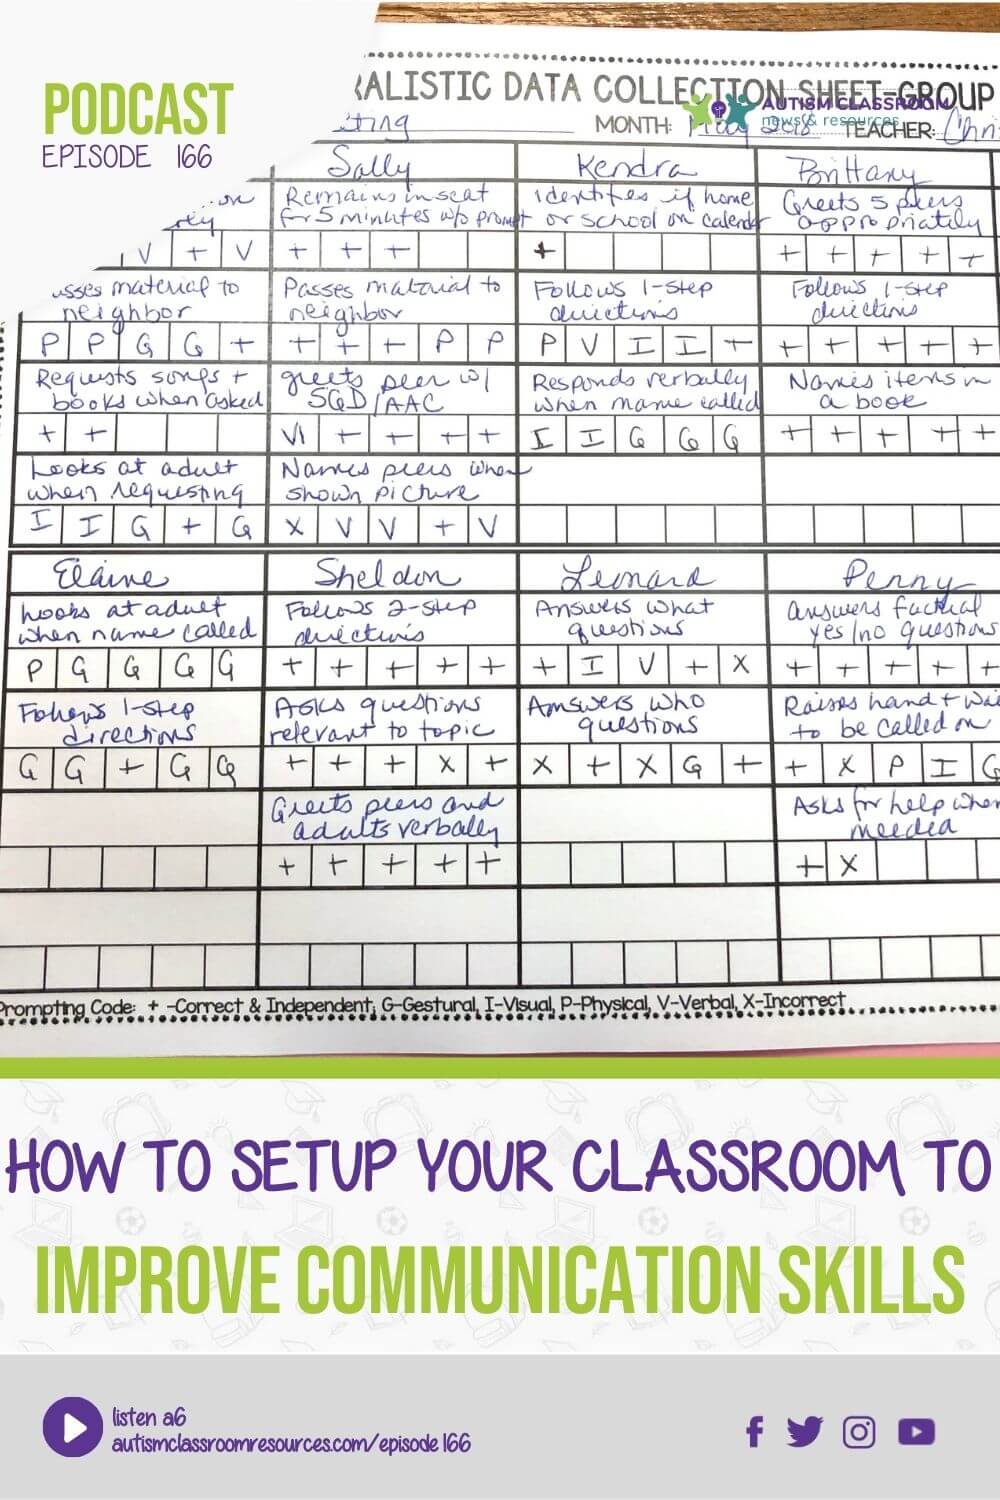 PODCAST
EPISODE 166
RALISTIC DATA COLLECTION SHEET-GROUP
AUTISM CLASSROOM
news & resources
MONTH: May 2018 TEACHER: Chri
Sally Kendra Brittany
Remains in seat identifies if home Greets 5 peers
for 5 minutes w/o prompt or school on calendar appropriately
V + V + + + + + + + + +
asses material to Passes material to Follows 1-step Follows 1-step
neighbor neighbor directions directions
P P G G + + + + P P P V I I + + + + + +
Requests songs + greets peer w/ Responds verbally Names items in
books when asked SGD/AAC when name called a book
+ + VI + + + + I I G G G + + + + +
Looks at adult Names peers when
when requesting shown picture
I I G + G X V V + V
Elaine Sheldon Leonard Penny
Looks at adult Follows 2-step Answers what answers factual
when name called directions questions yes/no questions
P G G G G + + + + + + I V + X + + + + +
Follows 1-step Asks questions Answers who Raises hand + wai
directions relevant to topic questions to be called on
G G + G G + + + X + X + X G + + X P I G
Greets peers and Asks for help when
adults verbally needed
+ + + + + + X
Prompting Code: + -Correct & Independent; G-Gestural, I-Visual, P-Physical, V-Verbal, X-Incorrect
HOW TO SETUP YOUR CLASSROOM TO
IMPROVE COMMUNICATION SKILLS
listen a6
autismclassroomresources.com/episode166